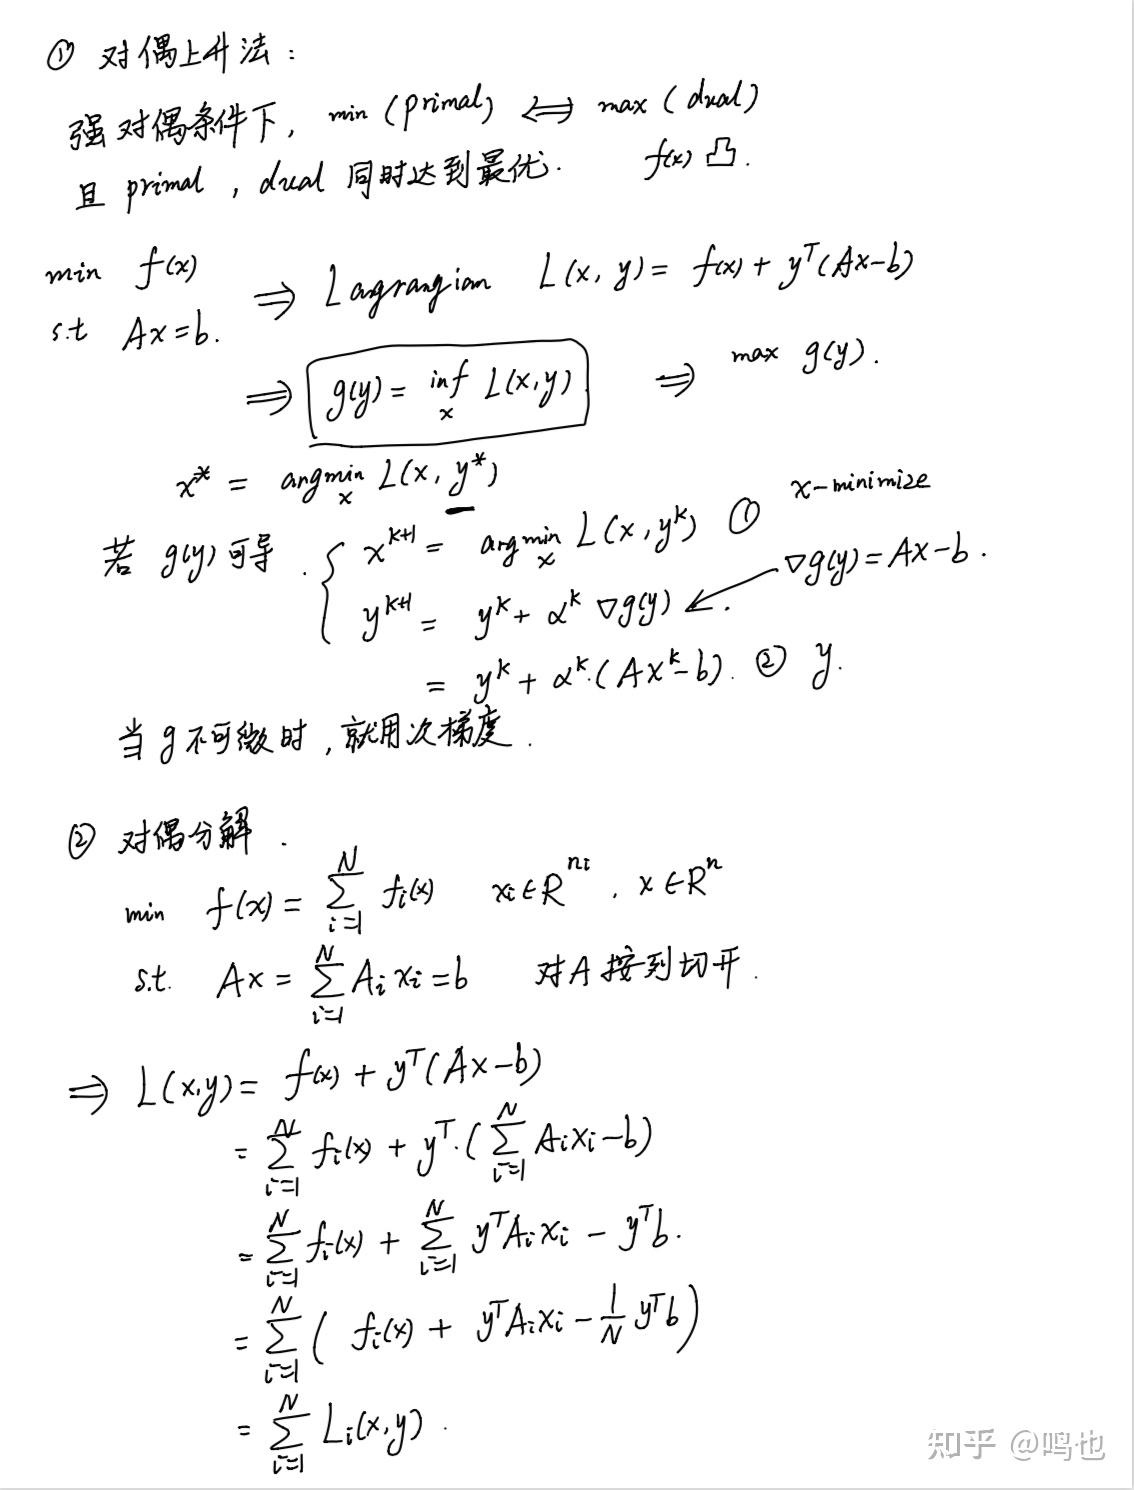 ① 对偶上升法：
强对偶条件下, min (primal) ⟺ max (dual)
且 primal , dual 同时达到最优. f(x) 凸.
min f(x) ⇒ Lagrangian L(x, y) = f(x) + y^T(Ax-b)
s.t Ax=b.
⇒ g(y) = inf_x L(x,y) ⇒ max g(y).
x^* = argmin_x L(x, y^*)
若 g(y) 可导. { x^{k+1} = argmin_x L(x, y^k) ① x-minimize
y^{k+1} = y^k + α^k ∇g(y) ← ∇g(y) = Ax-b.
= y^k + α^k·(Ax^k-b). ② y.
当 g 不可微时, 就用次梯度.
② 对偶分解.
min f(x) = ∑_{i=1}^N f_i(x) x_i∈R^{n_i}, x∈R^n
s.t. Ax = ∑_{i=1}^N A_i x_i = b 对A按列切开.
⇒ L(x,y) = f(x) + y^T(Ax-b)
= ∑_{i=1}^N f_i(x) + y^T·(∑_{i=1}^N A_i x_i - b)
= ∑_{i=1}^N f_i(x) + ∑_{i=1}^N y^T A_i x_i - y^T b.
= ∑_{i=1}^N ( f_i(x) + y^T A_i x_i - 1/N y^T b )
= ∑_{i=1}^N L_i(x,y).
知乎 @鸣也